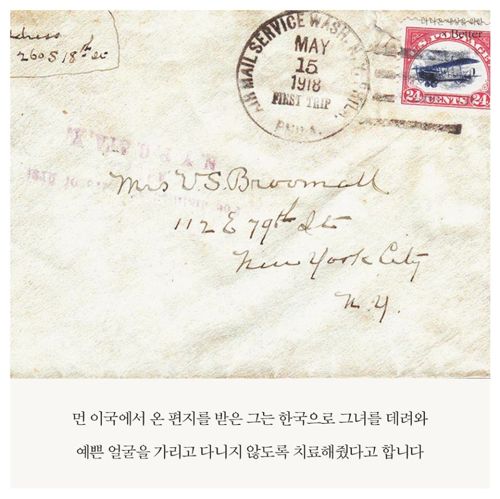 dress
260 S 18th St
AIR MAIL SERVICE WASH. N.Y. PHILA.
MAY
15
1918
FIRST TRIP
PHILA.
더 나은 세상을 위한
Better
U.S. POSTAGE
24 CENTS 24
Mrs V. S. Broomall
112 E 79th St
New York City
N. Y.
먼 이국에서 온 편지를 받은 그는 한국으로 그녀를 데려와
예쁜 얼굴을 가리고 다니지 않도록 치료해줬다고 합니다